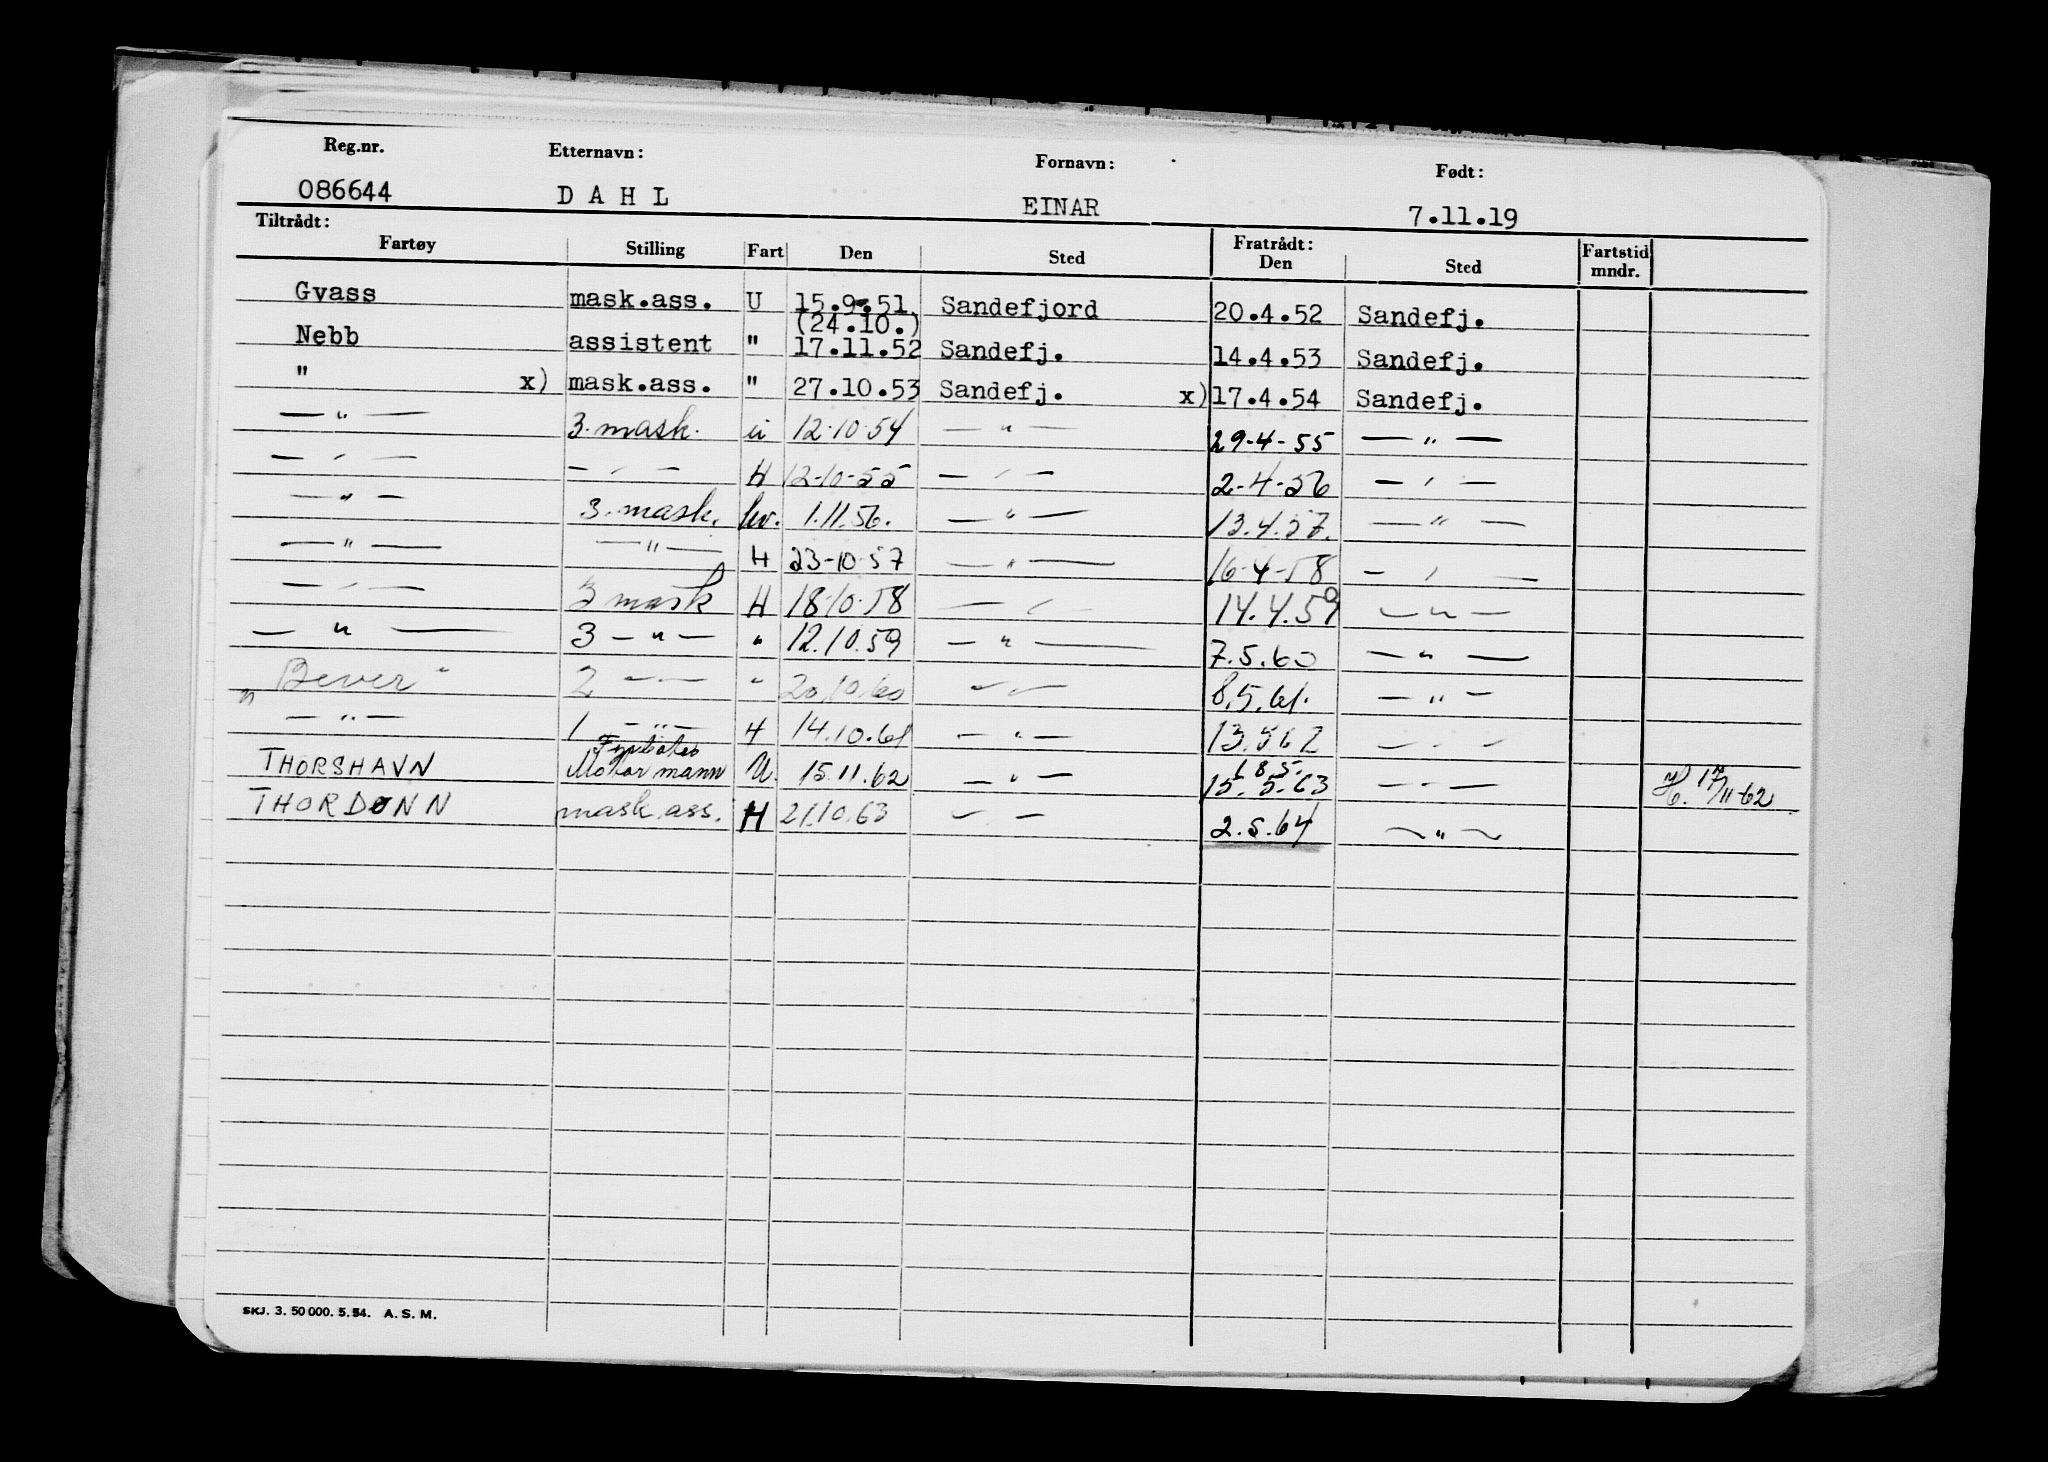 Reg.nr. Etternavn: Fornavn: Født:
086644 DAHL EINAR 7.11.19
Tiltrådt: Fratrådt:
Fartøy Stilling Fart Den Sted Den Sted Fartstid mndr.
Gvass mask.ass. U 15.9.51 Sandefjord 20.4.52 Sandefj.
(24.10.)
Nebb assistent " 17.11.52 Sandefj. 14.4.53 Sandefj.
" x) mask.ass. " 27.10.53 Sandefj. x) 17.4.54 Sandefj.
—"— 3.mask. 12-10-54 —"— 29-4-55 —"—
—"— —"— H 12-10-55 —"— 2-4-56 —"—
—"— 3.mask. hv. 1.11.56. —"— 13.4.57. —"—
—"— —"— H 23-10-57 —"— 16-4-58 —"—
—"— 3 mask H 18-10-58 —"— 14.4.59 —"—
—"— 3 —"— " 12.10.59 —"— 7.5.60 —"—
"Bever" 2 —"— " 20.10.60 —"— 8.5.61. —"—
—"— 1 —"— H 14.10.61 —"— 13.5.62 —"—
Fyrbøter 18.5.
THORSHAVN Motormann U 15.11.62 —"— 15.5.63 —"— H. 17/11-62
THORDØNN mask.ass. H 21.10.63 —"— 2.5.64 —"—
SKJ. 3. 50 000. 5. 54. A. S. M.